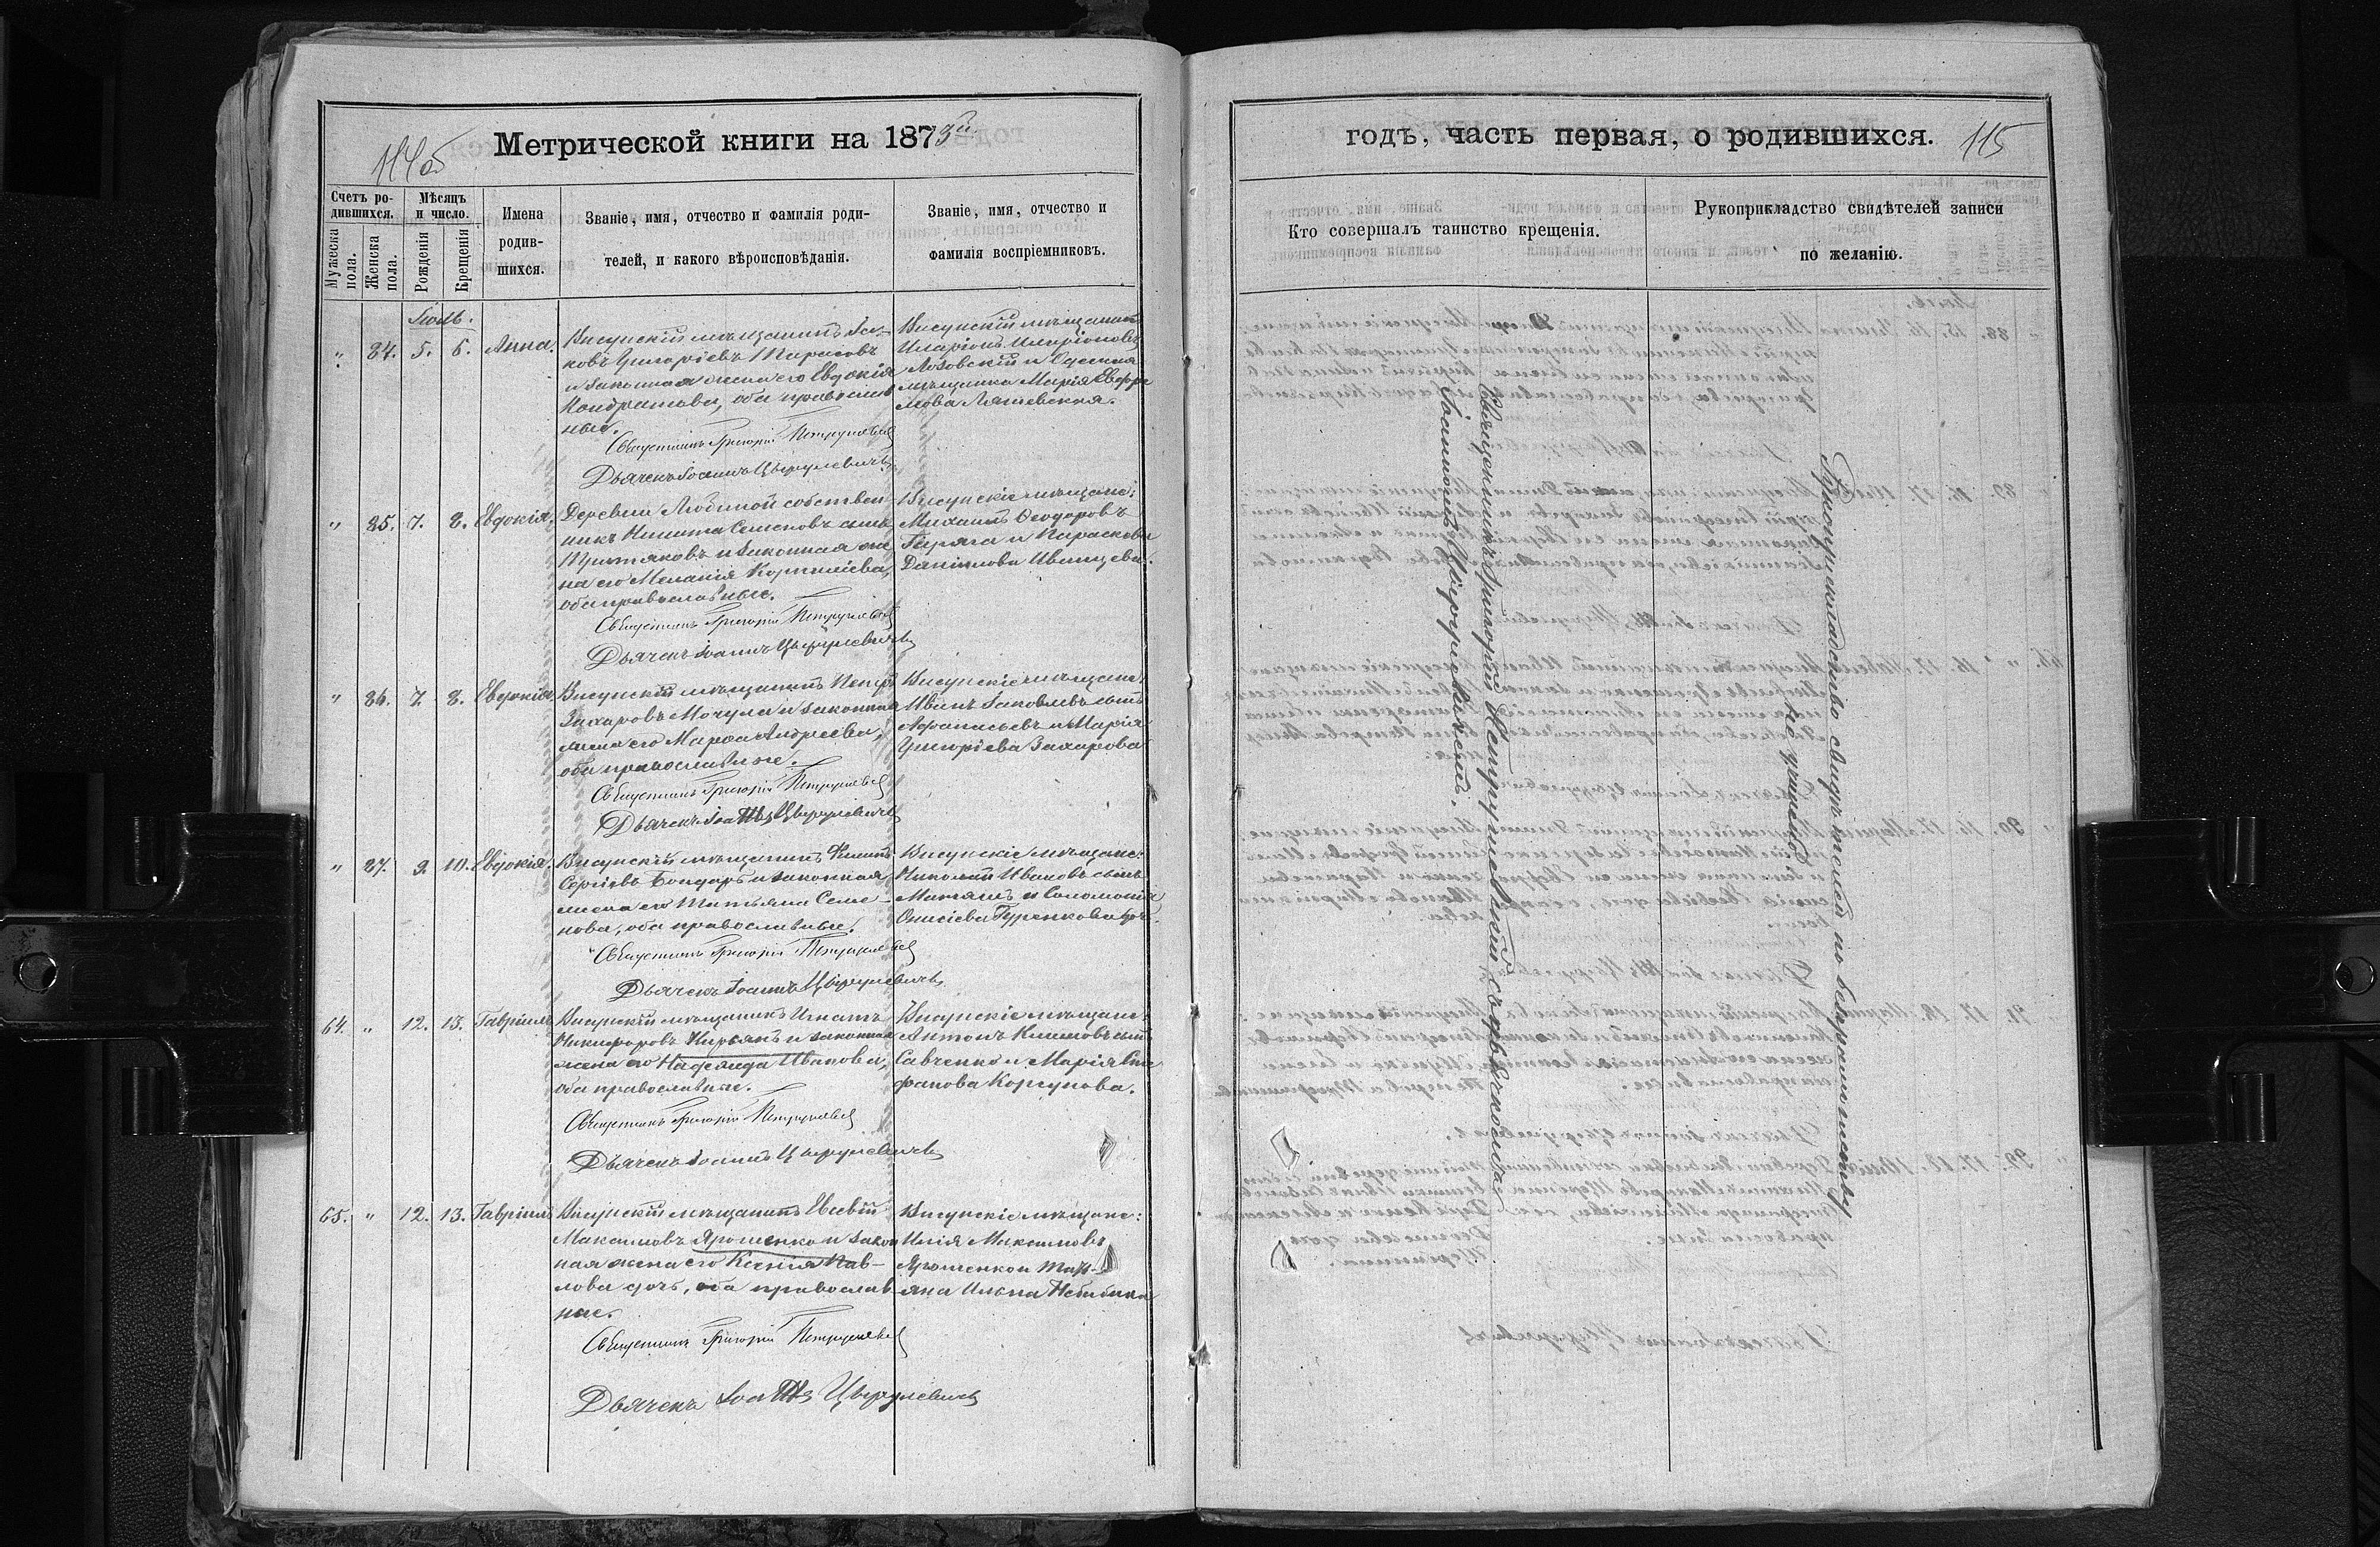 114об
Метрической книги на 1873й.
Счетъ ро-
дившихся.
Мужеска пола.
Женска пола.
Мѣсяцъ
и число.
Рожденія
Крещенія
Имена
родив-
шихся.
Званіе, имя, отчество и фамилія роди-
телей, и какого вѣроисповѣданія.
Званіе, имя, отчество и
фамилія воспріемниковъ.
Іюль.
" 84. 5. 6. Анна.
Висунскій мѣщанинъ Іа-
ковъ Григоріевъ Тарасовъ
и законная жена его Евдокія
Кондратьева, оба православ
ные.
Висунскій мѣщанинъ
Иларіонъ Иларіоновъ
Лозовскій и Одесская
мѣщанка Марія Ефре
мова
Священникъ Григорій Петрушевскій
Дьячекъ Іоаннъ Цыруле­вичъ
" 85. 7. 8. Евдокія.
Деревни Любиной собствен
никъ Никита Семеновъ сынъ
и законная же
на его Меланія Корниліева,
оба православные.
Висунскіе мѣщане:
Михаилъ Ѳеодоровъ
и Параскева
Даніилова
Священникъ Григорій Петрушевскій
Дьячекъ Іоаннъ Цырулевичъ
" 86. 7. 8. Евдокія.
Висунскій мѣщанинъ Петръ
Захаровъ Мочула и законная
жена его Марѳа Андреева,
оба православные.
Висунскіе мѣщане
Иванъ Іаковлевъ сынъ
Афанасьевъ и Марія
Григоріева Захарова
Священникъ Григорій Петрушевскій
Дьячекъ Іоаннъ Цырулевичъ
" 87. 9. 10. Евдокія.
Висунскій мѣщанинъ
Сергіевъ Бондарь и законная
жена его Татьяна Семе-
нова, оба православные.
Висунскіе мѣщане:
Николай Ивановъ сынъ
и Соломонія
Онисіева
Священникъ Григорій Петрушевскій
Дьячекъ Іоаннъ Цырулевичъ
64. " 12. 13. Гавріилъ
Висунскій мѣщанинъ Игнатъ
Никифоровъ Кирьянъ и законная
жена его Надежда Иванова,
оба православные.
Висунскіе мѣщане
Антонъ Климовъ сынъ
Савченко и Марія Сте
фанова Корсунова.
Священникъ Григорій Петрушевскій
Дьячекъ Іоаннъ Цырулевичъ
65. " 12. 13. Гавріилъ
Висунскій мѣщанинъ Евсевій
Максимовъ Ярошенко и закон
ная жена его Ксенія Пав-
лова дочь, оба православ
ные.
Висунскіе мѣщане:
Илія Максимовъ
Ярошенко и Тать-
яна
Священникъ Григорій Петрушевскій
Дьячекъ Іоаннъ Цырулевичъ
годъ, часть первая, о родившихся. 115
Кто совершалъ таинство крещенія.
Рукоприкладство свидѣтелей записи
по желанію.
Священникъ Григорій Петрушевскій съ дьячкомъ
Іоанномъ
Рукоприкладство свидѣтелей по безграмотству
не учинено.